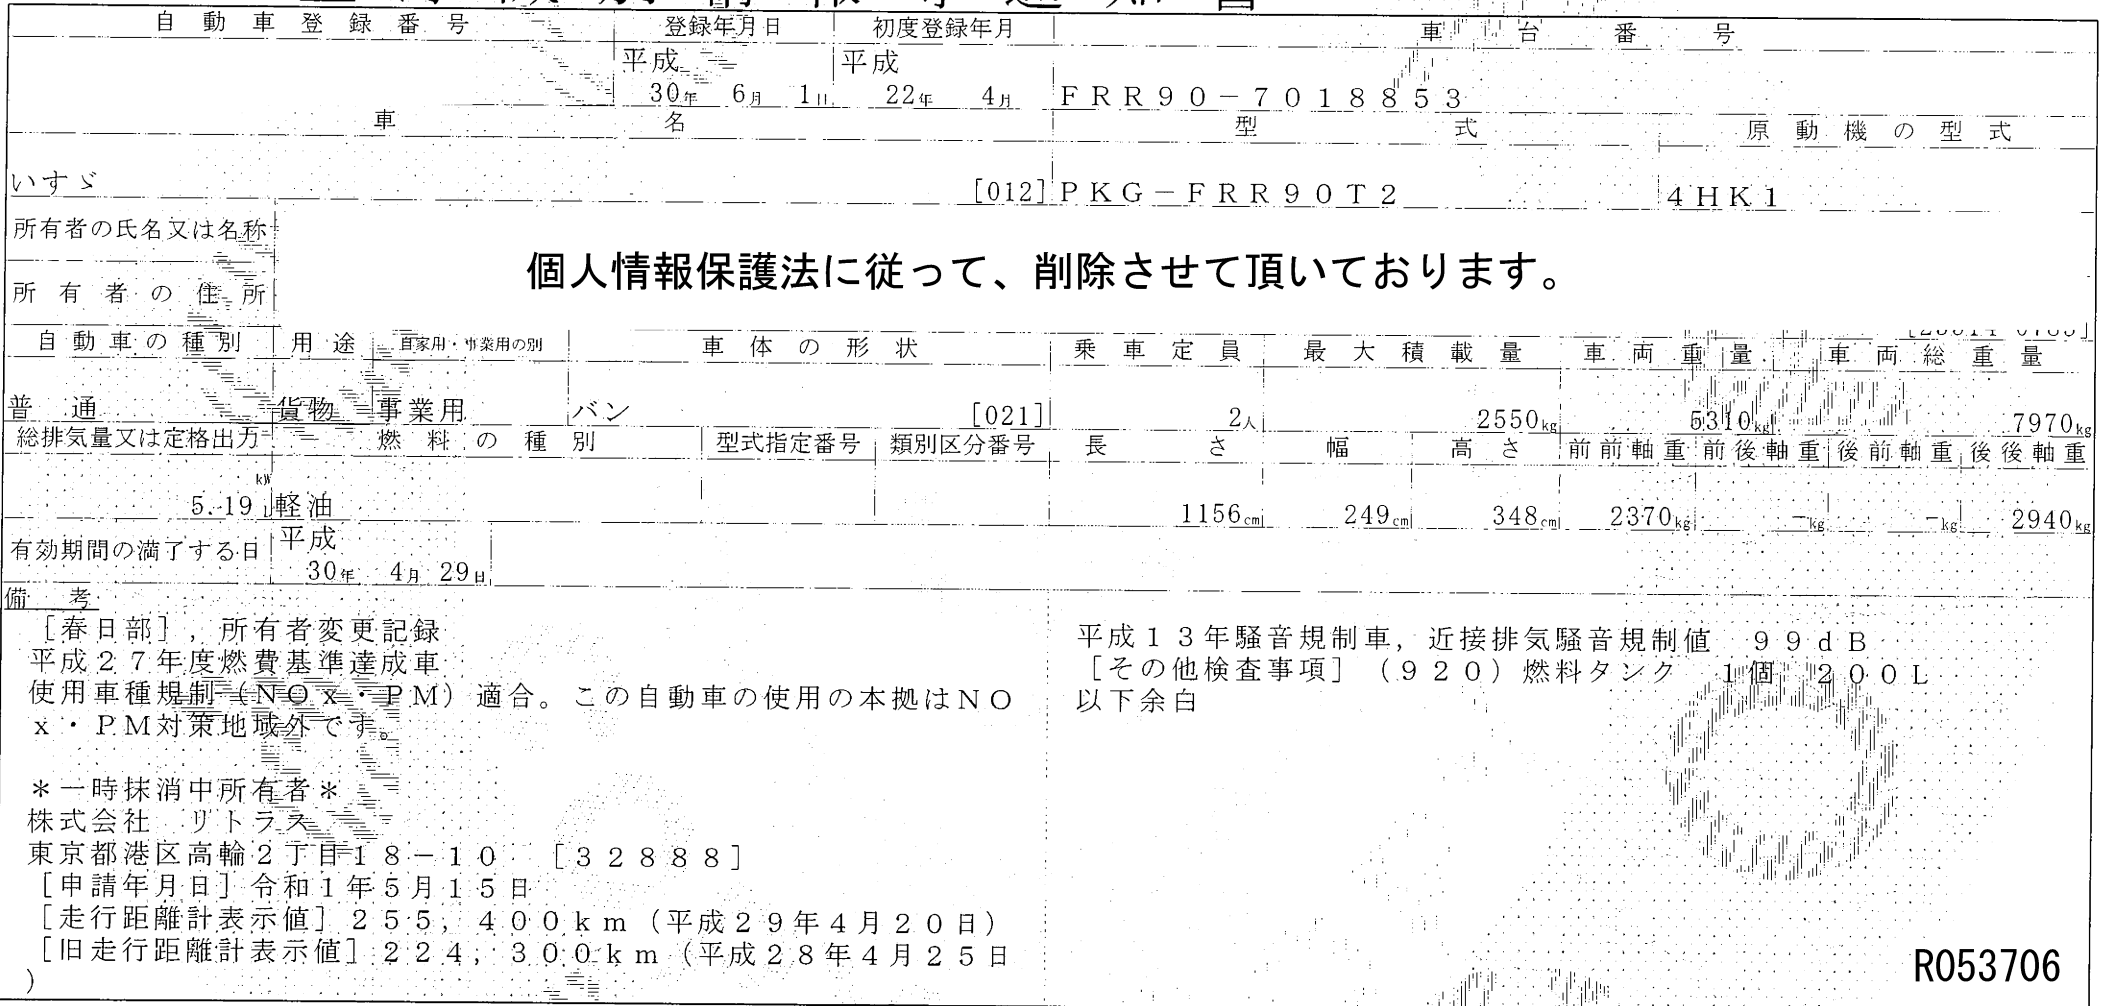 自動車登録番号 登録年月日 初度登録年月 車台番号
平成 平成
30年 6月 1日 22年 4月 FRR90-7018853
車名 型式 原動機の型式
いすゞ [012] PKG-FRR90T2 4HK1
所有者の氏名又は名称
個人情報保護法に従って、削除させて頂いております。
所有者の住所
自動車の種別 用途 自家用・事業用の別 車体の形状 乗車定員 最大積載量 車両重量 車両総重量
普通 貨物 事業用 バン [021] 2人 2550kg 5310kg 7970kg
総排気量又は定格出力 燃料の種別 型式指定番号 類別区分番号 長さ 幅 高さ 前前軸重 前後軸重 後前軸重 後後軸重
kW
5.19 L 軽油 1156cm 249cm 348cm 2370kg -kg -kg 2940kg
有効期間の満了する日 平成
30年 4月 29日
備考
[春日部],所有者変更記録
平成27年度燃費基準達成車
使用車種規制(NOx・PM)適合。この自動車の使用の本拠はNO
x・PM対策地域外です。
*一時抹消中所有者*
株式会社 リトラス
東京都港区高輪2丁目18-10 [32888]
[申請年月日]令和1年5月15日
[走行距離計表示値]255,400km(平成29年4月20日)
[旧走行距離計表示値]224,300km(平成28年4月25日
)
平成13年騒音規制車,近接排気騒音規制値 99dB
[その他検査事項](920)燃料タンク 1個 200L
以下余白
R053706